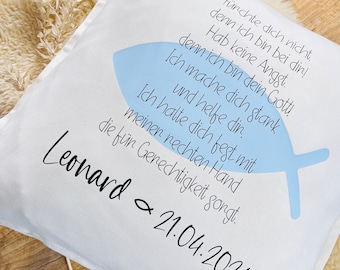 Fürchte dich nicht,
denn ich bin bei dir!
Hab keine Angst,
denn ich bin dein Gott!
Ich mache dich stark
und helfe dir.
Ich halte dich fest mit
meiner rechten Hand
die für Gerechtigkeit sorgt.
Leonard 21.04.202